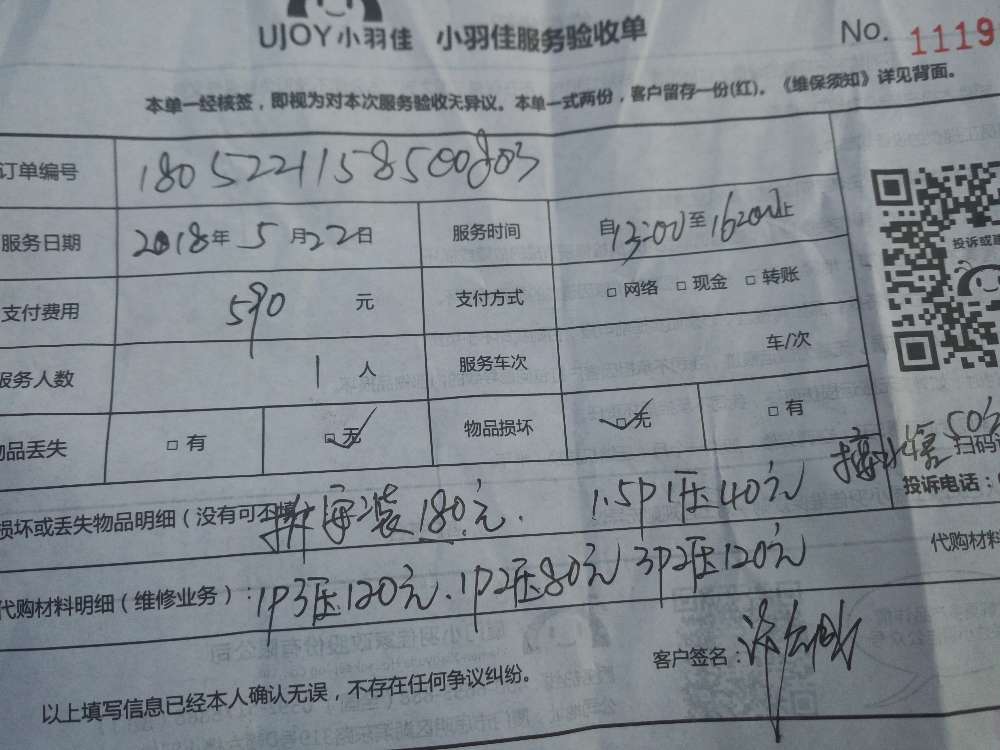 UJOY小羽佳 小羽佳服务验收单 No. 1119
本单一经核签，即视为对本次服务验收无异议。本单一式两份，客户留存一份(红)。《维保须知》详见背面。
订单编号 180522115850080
服务日期 2018年5月22日 服务时间 自13:00至16:20止
支付费用 590 元 支付方式 □网络 □现金 □转账
服务人数 1 人 服务车次 车/次
物品丢失 □有 □无 物品损坏 □无 □有
投诉电话：
损坏或丢失物品明细（没有可不填 拆安装180元. 1.5P1压40元 50元
代购材料
代购材料明细（维修业务）：1P3压120元.1P2压80元 3P2压120元
客户签名：
以上填写信息已经本人确认无误，不存在任何争议纠纷。